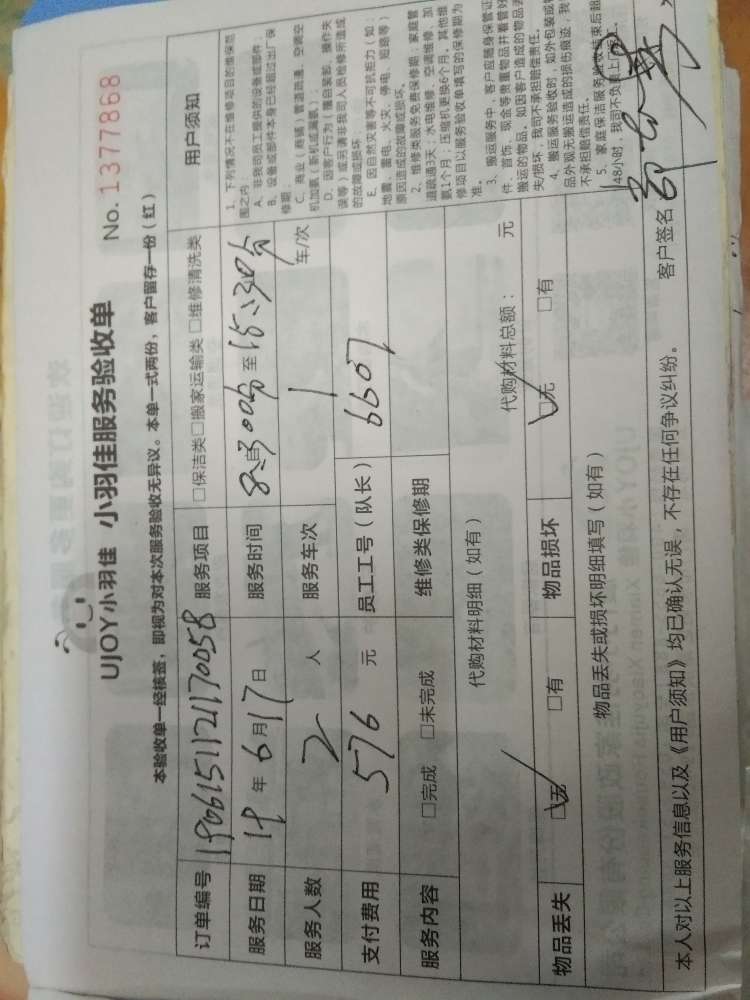 UJOY小羽佳 小羽佳服务验收单 No. 1377868
本验收单一经核签，即视为对本次服务验收无异议。本单一式两份，客户留存一份（红）
订单编号 190615112117005 8 服务项目 □保洁类□搬家运输类 □维修清洗类
服务日期 19年6月17日 服务时间 8:30 分至15:30分
服务人数 2 人 服务车次 1 车/次
支付费用 576 元 员工工号（队长） 6607
服务内容 □完成 □未完成 维修类保修期
代购材料明细（如有） 代购材料总额： 元
物品丢失 □无 □有 物品损坏 □无 □有
物品丢失或损坏明细填写（如有）
本人对以上服务信息以及《用户须知》均已确认无误，不存在任何争议纠纷。 客户签名
用户须知
1、下列情况不在维修项目的维保范
围之内：
A、非我司员工提供的设备或部件；
B、设备或部件本身已经超过出厂保
修期；
C、商业（商铺）管道疏通、空调空
机加氨（新机或漏氨）；
D、因客户行为（擅自装卸、操作失
误等）或另请非我司人员检修所造成
的故障或损坏；
E、因自然灾害等不可抗拒力（如：
地震、雷电、火灾、停电、短路等）
原因造成的故障或损坏。
2、维修类服务免费保修期：家庭管
道疏通3天；水电维修、空调维修、加
氨1个月；压缩机更换6个月。其他维
修项目以服务验收单填写的保修期为
准。
3、搬运服务中，客户应随身保管证
件、首饰、现金等贵重物品并看管好
搬运的物品。如因客户造成的物品丢
失/损坏，我司不承担赔偿责任。
4、搬运服务验收时，如外包装或物
品外观无搬运造成的损伤痕迹，我
不承担赔偿责任。
5、家庭保洁服务验收结束后超
48小时，我司不负责上门